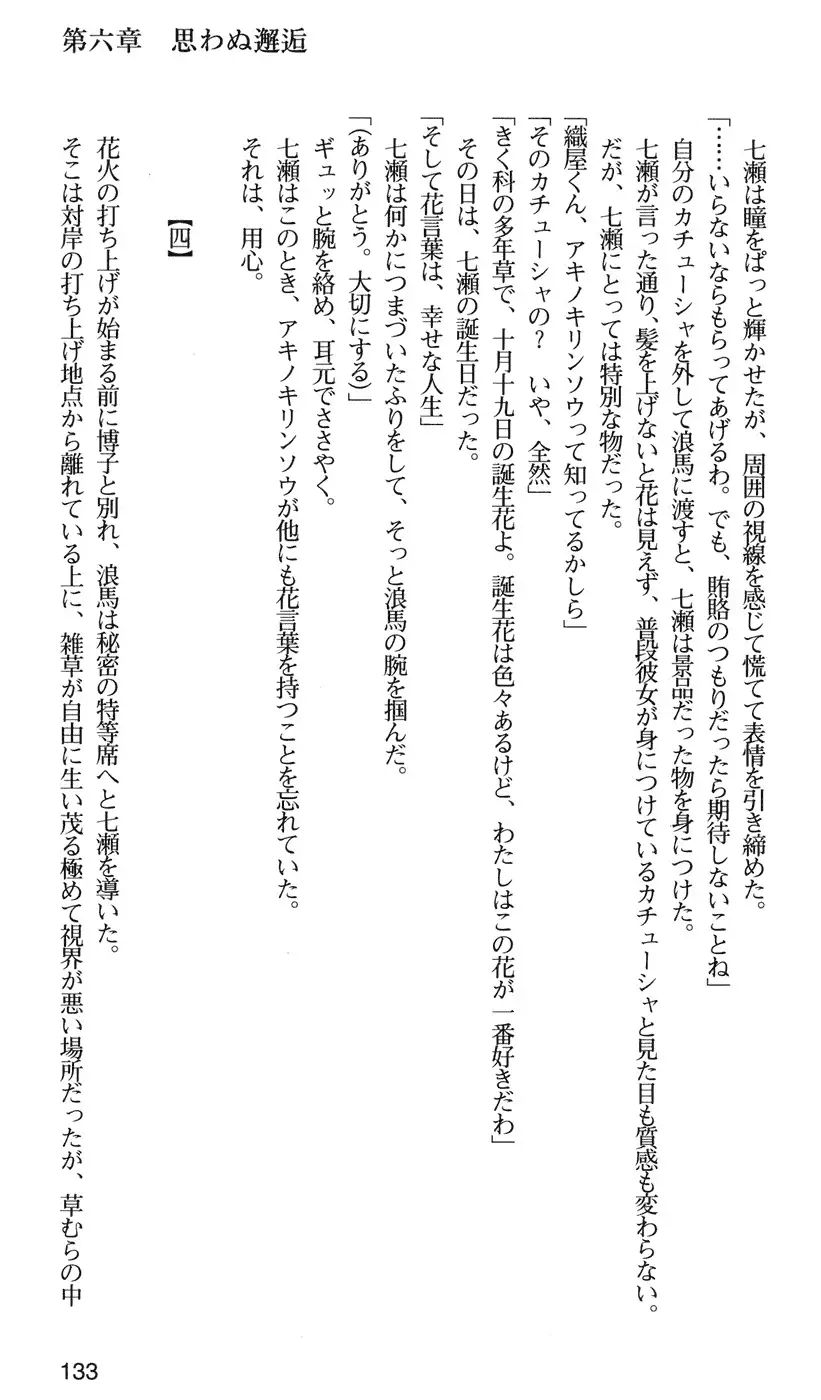 第六章　思わぬ邂逅
　七瀬は瞳をぱっと輝かせたが、周囲の視線を感じて慌てて表情を引き締めた。
「……いらないならもらってあげるわ。でも、賄賂のつもりだったら期待しないことね」
　自分のカチューシャを外して浪馬に渡すと、七瀬は景品だった物を身につけた。
　七瀬が言った通り、髪を上げないと花は見えず、普段彼女が身につけているカチューシャと見た目も質感も変わらない。
　だが、七瀬にとっては特別な物だった。
「織屋くん、アキノキリンソウって知ってるかしら」
「そのカチューシャの？　いや、全然」
「きく科の多年草で、十月十九日の誕生花よ。誕生花は色々あるけど、わたしはこの花が一番好きだわ」
　その日は、七瀬の誕生日だった。
「そして花言葉は、幸せな人生」
　七瀬は何かにつまづいたふりをして、そっと浪馬の腕を掴んだ。
「（ありがとう。大切にする）」
　ギュッと腕を絡め、耳元でささやく。
　七瀬はこのとき、アキノキリンソウが他にも花言葉を持つことを忘れていた。
　それは、用心。
【四】
　花火の打ち上げが始まる前に博子と別れ、浪馬は秘密の特等席へと七瀬を導いた。
　そこは対岸の打ち上げ地点から離れている上に、雑草が自由に生い茂る極めて視界が悪い場所だったが、草むらの中
133